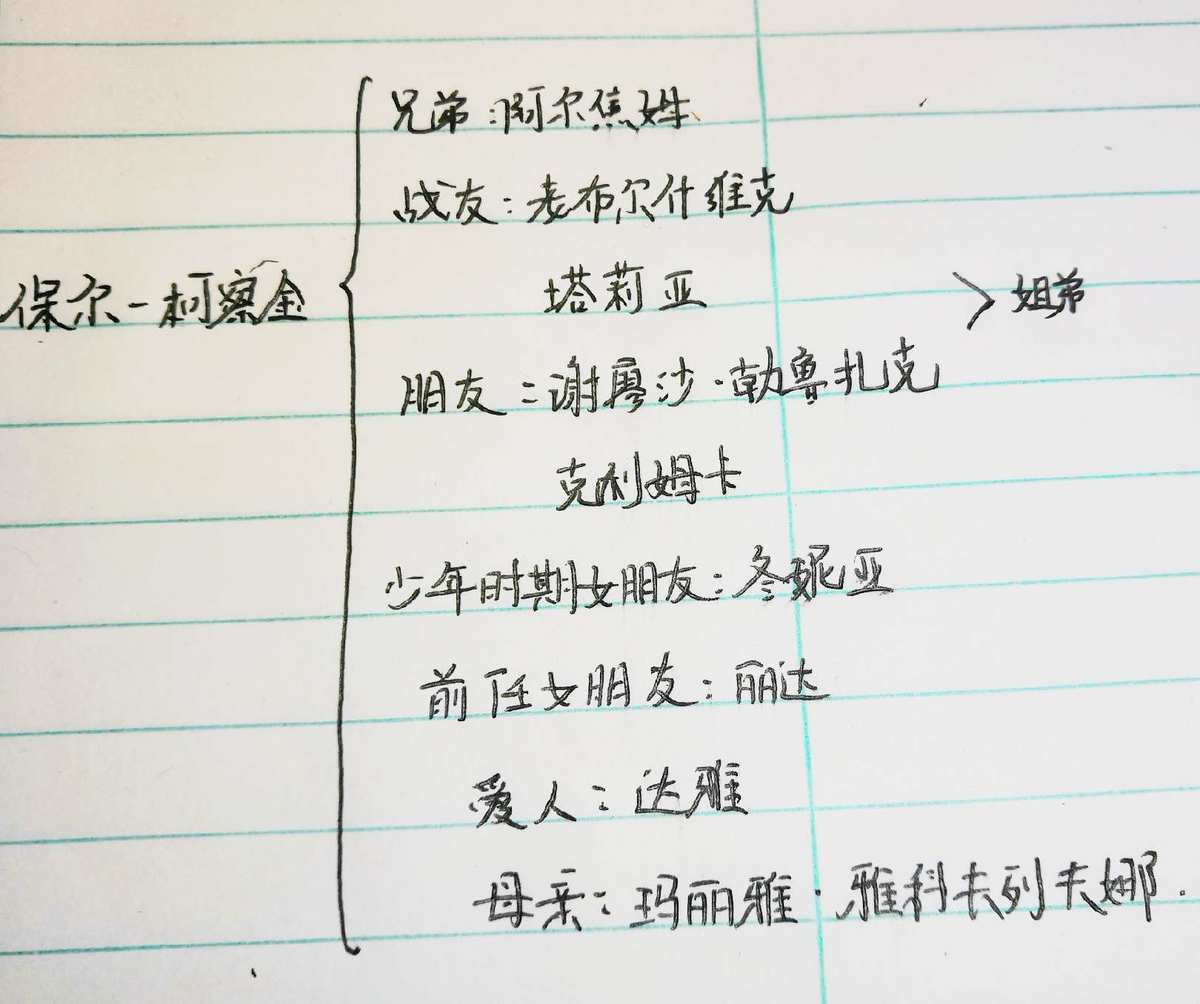 兄弟:阿尔焦姆
战友:老布尔什维克
保尔-柯察金
塔莉亚
>姐弟
朋友:谢廖沙·勃鲁扎克
克利姆卡
少年时期女朋友:冬妮亚
前任女朋友:丽达
爱人:达雅
母亲:玛丽雅·雅科夫列夫娜.